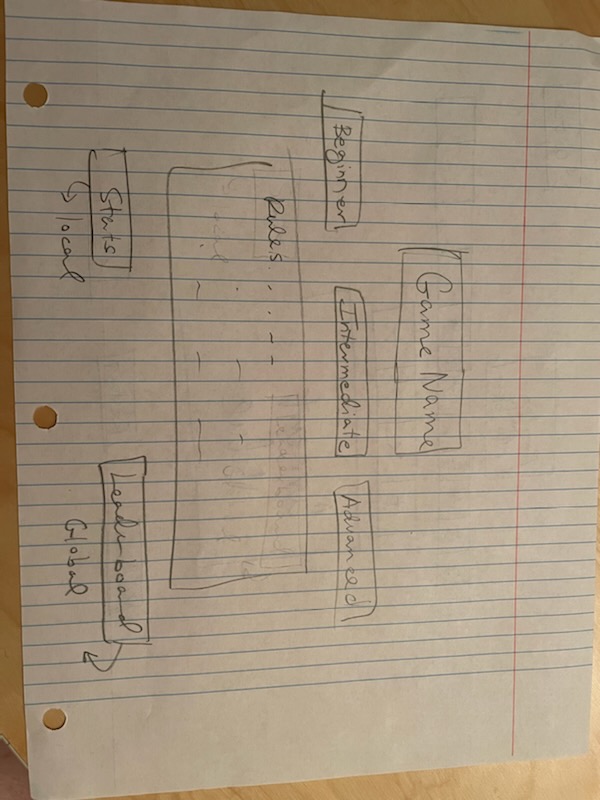 Game Name
Beginner Intermediate Advanced
Rules
Stats Leaderboard
local Global